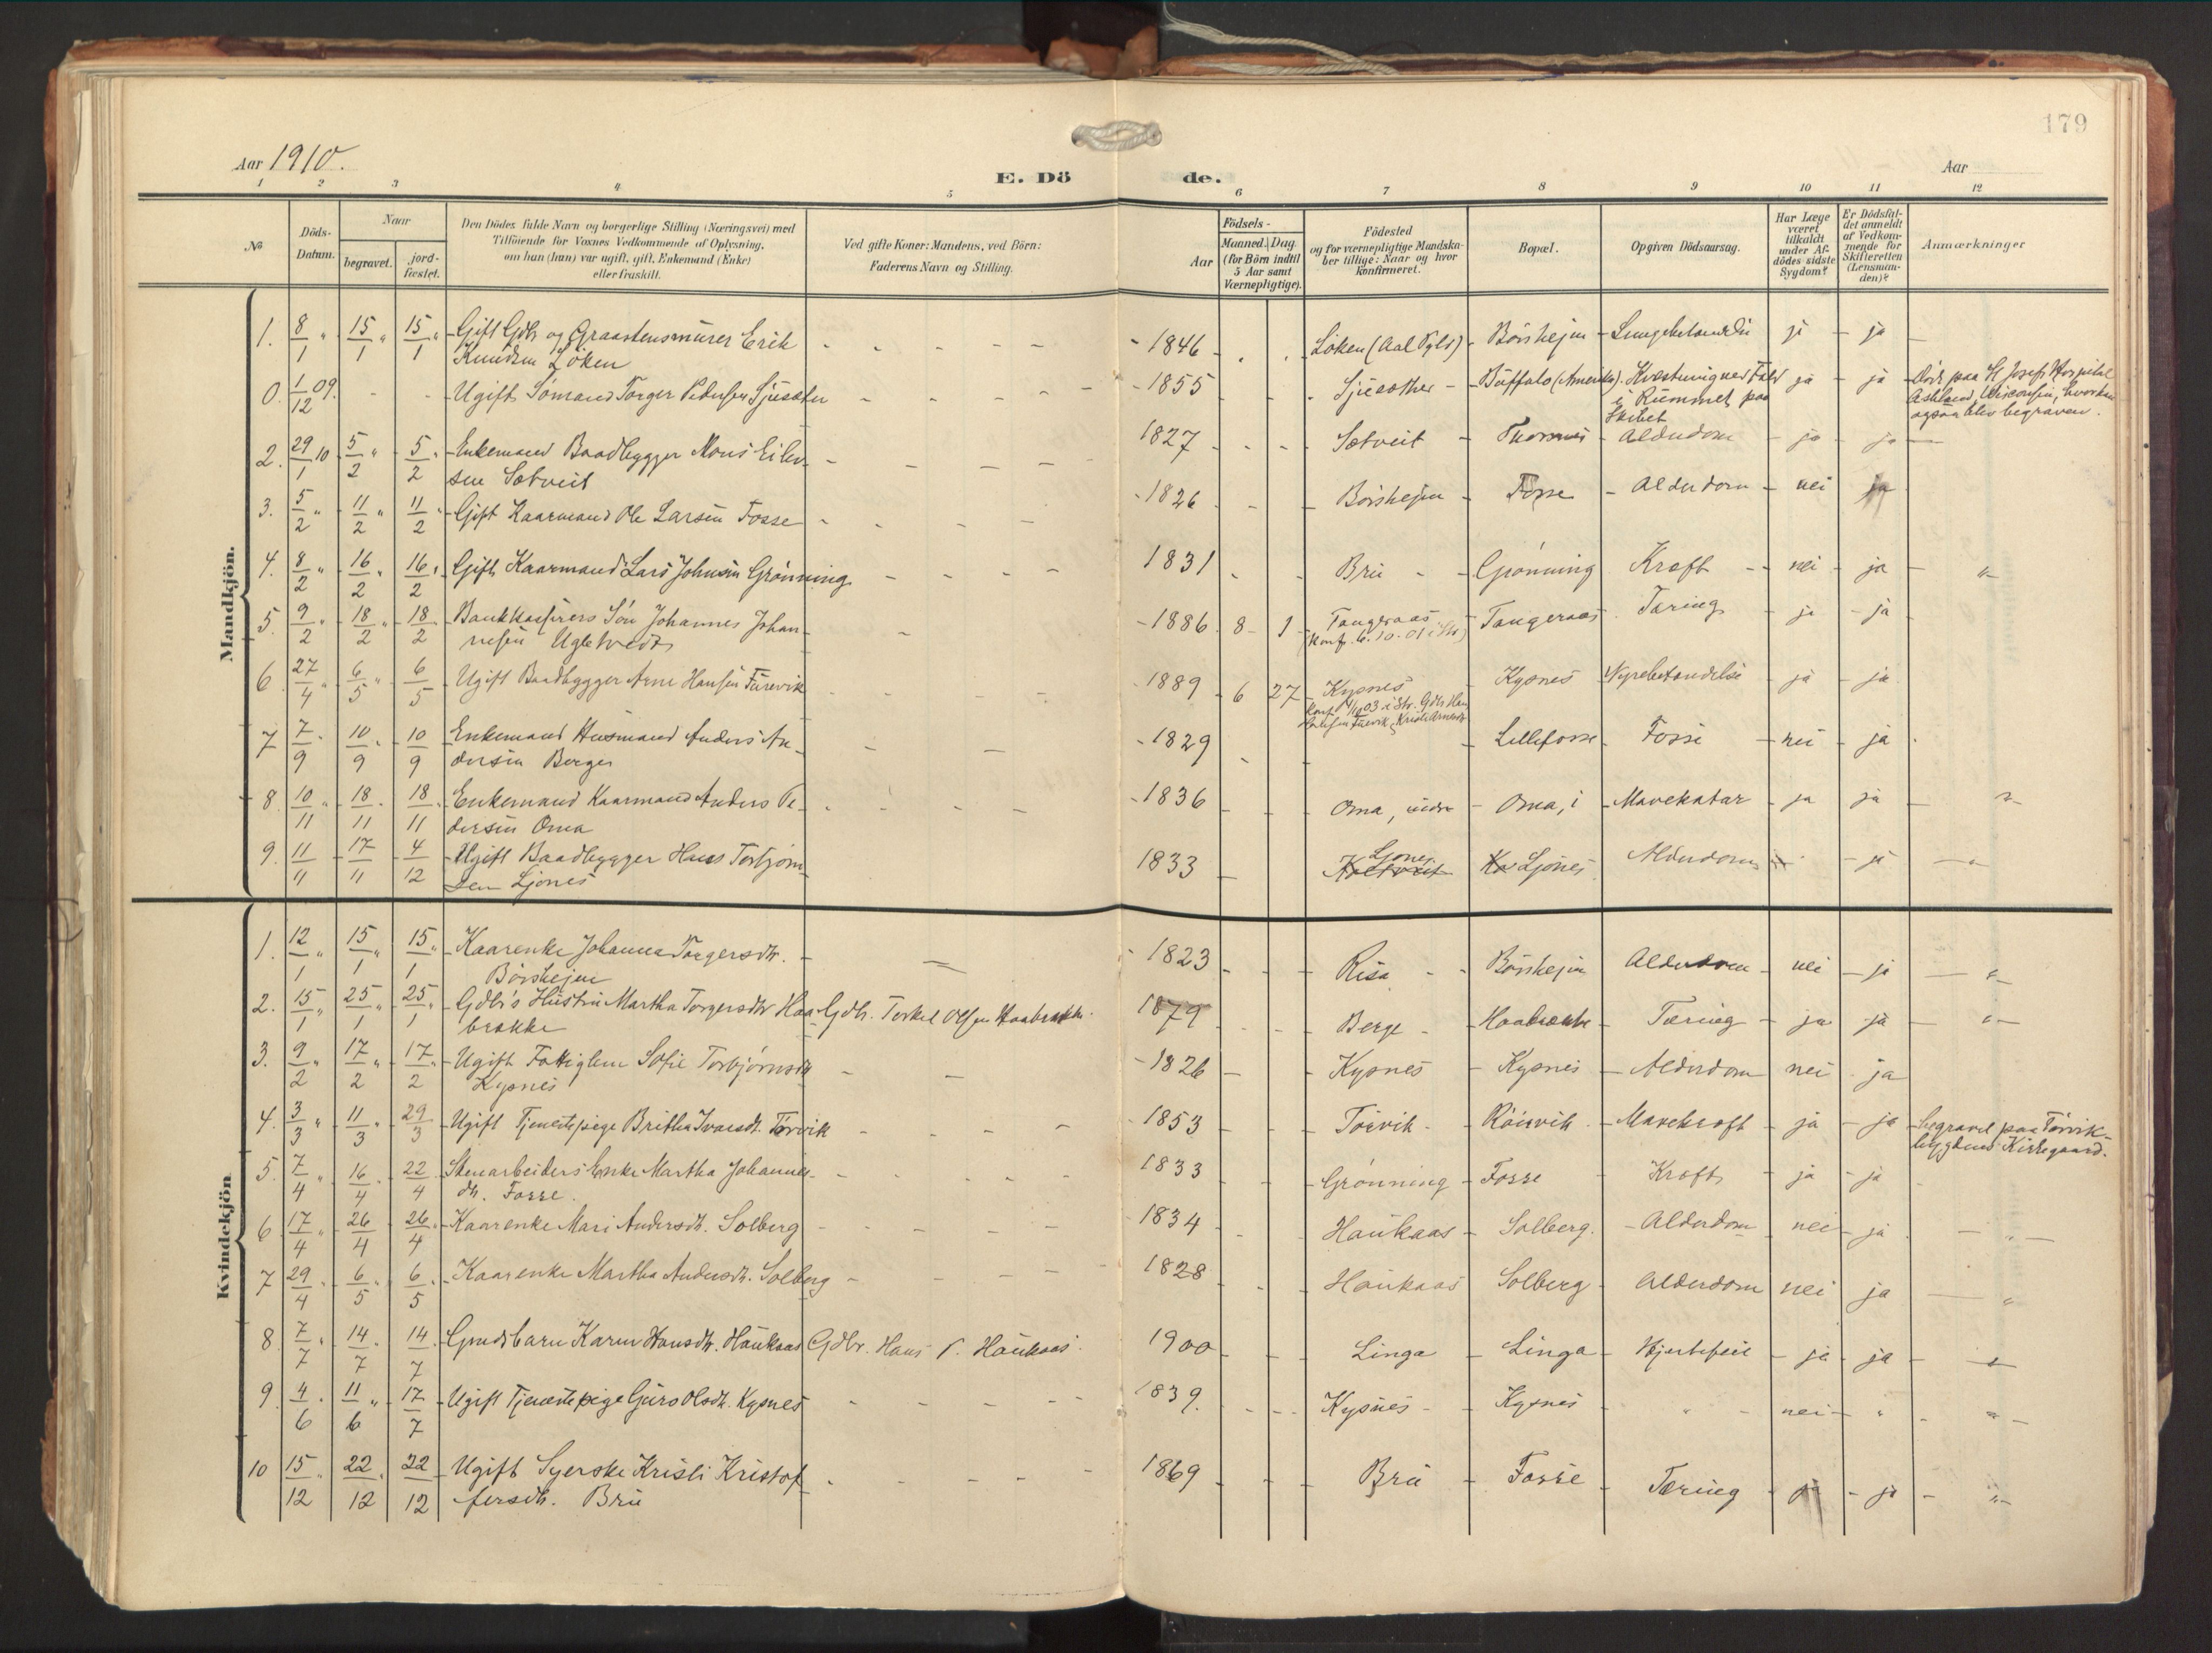 179
Aar 1910.
Aar
E. Dö de.
1 2 3 4 5 6 7 8 9 10 11 12
No
Döds-
Datum.
Naar
begravet.
jord-
fæstet.
Den Dödes fulde Navn og borgerlige Stilling (Næringsvei) med
Tilföiende for Voxnes Vedkommende af Oplysning,
om han (hun) var ugift, gift, Enkemand (Enke)
eller fraskilt.
Ved gifte Koner: Mandens, ved Börn:
Faderens Navn og Stilling.
Födsels-
Aar
Maaned. Dag
(for Börn indtil
5 Aar samt
Værnepligtige).
Födested
og for værnepligtige Mandska-
ber tillige: Naar og hvor
konfirmeret.
Bopæl.
Opgiven Dödsaarsag.
Har Læge
været
tilkaldt
under Af-
dödes sidste
Sygdom?
Er Dödsfal-
det anmeldt
af Vedkom-
mende for
Skifteretten
(Lensman-
den)?
Anmærkninger
Mandkjön.
1. 8/1 " 15/1 " 15/1 " Gift Gdbr og Graastensmurer Erik - 1846 Löken (Aal Pgld) - Börshejm - Lungebetændelse ja - ja
Knudsen Löken
0. 1/12 09. Ugift Sömand Torger Pedersen Sjusæter - 1855 Sjusæther - Buffalo (Amerika). Kvæstning ved Fald ja - ja Döde paa St Josefs Hospital
i Rummet paa
Skibet
Ashland, Wisconsin, hvorhen
ogsaa blev begraven.
2. 29/1 10 5/2 " 5/2 " Enkemand Baadbygger Mons Eilev- 1827 Sætveit - - Alderdom - ja - ja
sen Sætveit
3. 5/2 " 11/2 " 11/2 " Gift Kaarmand Ole Larsen Fosse - 1826 Börshejm - Fosse - Alderdom - nei ja
4. 8/2 " 16/2 " 16/2 " Gift Kaarmand Lars Johnsen Grönning 1831 Bru - Grönning Kræft - nei - ja "
5. 9/2 " 18/2 " 18/2 Bankkasserers Sön Johannes Johan- - 1886 8 - 1 - Tangeraas - Tangeraas Tæring ja - ja
nesen Ugletvedt
(Konf. 6.10.01 i Str)
6 27/4 " 6/5 " 6/5 Ugift Baadbygger Arne Hansen Furevik - 1889 - 6 27 - Kysnes Kysnes Nyrebetændelse ja - ja
7 7/9 10/9 " 10/9 Enkemand Husmand Anders An- - 1829 Lillefosse Fosse - nei - ja
dersen Berge
8. 10/11 " 18/11 18/11 Enkemand Kaarmand Anders Pe- - 1836 Oma, indre - Oma, i - Mavekatar - ja ja "
dersen Oma
9. 11/11 17/11 4/12 - Ugift Baadbygger Hans Torbjörn- 1833 Ljones Ljones Alderdom - ja "
sen Ljones
Kvindekjön
1. 12/1 " 15/1 " 15/1 " Kaarenke Johanna Torgersdtr. - 1823 Risa - - Börshejm Alderdom - nei - ja "
Börshejm
2. 15/1 " 25/1 " 25/1 " Gdbr's Hustru Martha Torgersdtr Haa- Gdbr. Torkel Olsen Haabrække. 1879 Berge - Haabrække - Tæring - ja - ja "
brække
3. 9/2 " 17/2 " 17/2 " Ugift Fattiglem Sofie Torbjörnsdtr - 1826 Kysnes - Kysnes - Alderdom nei - ja
Kysnes
4. 3/3 " 11/3 " 29/3 Ugift Tjenestepige Britha Ivarsdt. Törvik - 1853 Törvik - - Mavekræft - ja - ja begravet paa Törvik-
bygdens Kirkegaard.
5. 7/4 " 16/4 22/4 Stenarbeiders Enke Martha Johannes- 1833 Grönning - Fosse - Kræft ja - ja
dtr. Fosse.
6 17/4 " 26/4 26/4 " Kaarenke Mari Andersdt. Solberg - 1834 Haukaas - Solberg. - Alderdom nei - ja "
7 29/4 " 6/5 " 6/5 " Kaarenke Martha Andersdt. Solberg - 1828 Haukaas Solberg - Alderdom nei ja "
8 7/7 " 14/7 14/7 Gaardsbarn Karen Hansdtr. Haukaas Gdbr. Hans P. Haukaas. 1900 Linga - Linga Hjertefeil - ja - ja "
9 4/6 " 11/6 " 17/7 Ugift Tjenestepige Guro Olsdt. Kysnes 1839. Kysnes - Kysnes " nei - " "
10 15/12 " 22/12 " 22/12 Ugift Syerske Kristi Kristof- 1869 Bru Fosse Tæring ja - ja "
fersdtr. Bru